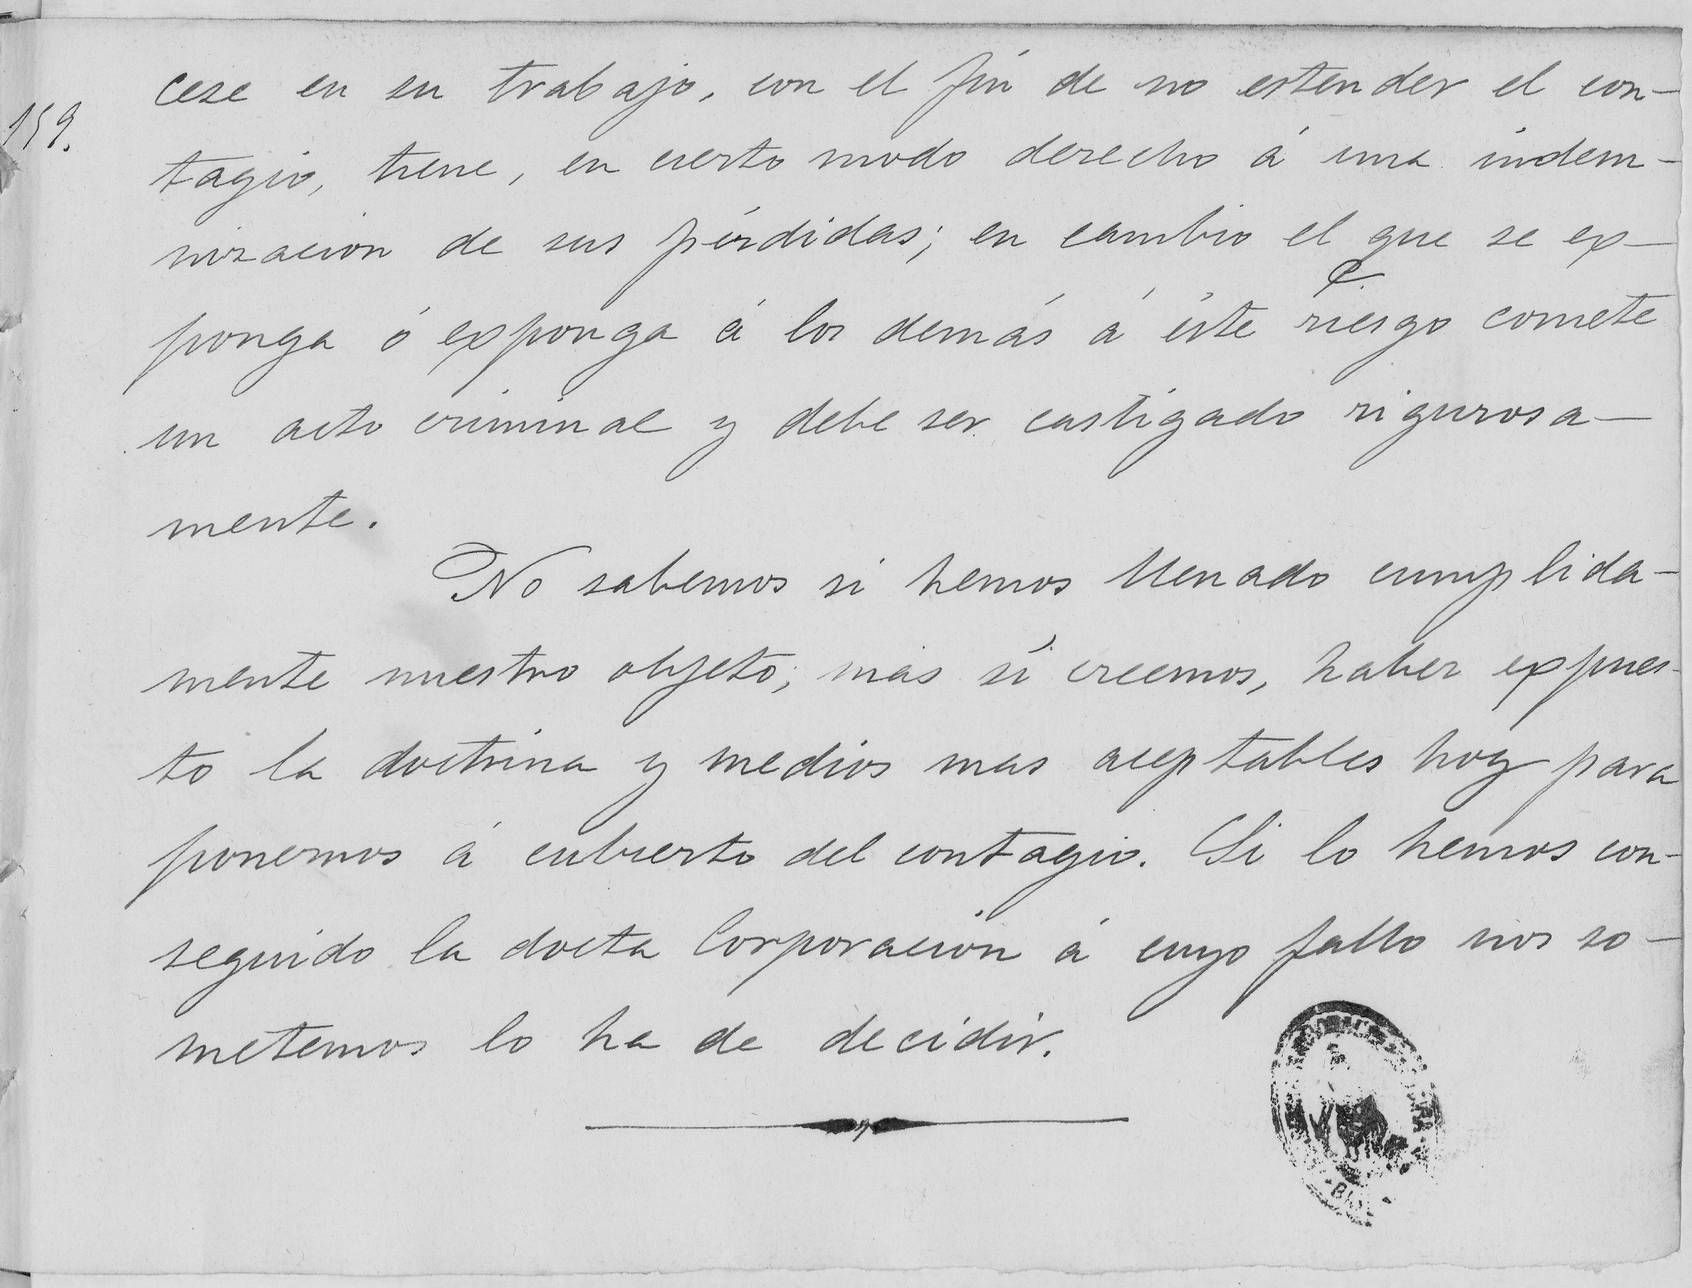 cese en su trabajo, con el fín de no estender el con-
159.
tagio, tiene, en cierto modo derecho á una indem-
nizacion de sus pérdidas; en cambio el que se ex-
ponga ó exponga á los demás á éste riesgo comete
un acto criminal y debe ser castigado rigurosa-
mente.
No sabemos si hemos llenado cumplida-
mente nuestro objeto; mas sí creemos, haber expues-
to la doctrina y medios mas aceptables hoy para
ponernos á cubierto del contagio. Si lo hemos con-
seguido la docta Corporación á cuyo fallo nos so-
metemos lo ha de decidir.